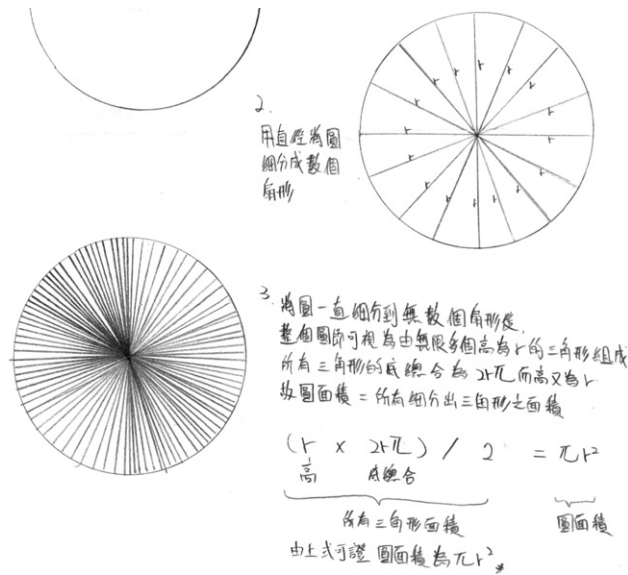 2.
用直徑將圓
細分成數個
角形
r r r r r r r r r r r r r r
3. 將圓一直細分到無數個角形後,
整個圓即可視為由無限多個高為r的三角形組成
所有三角形的底總合為 2rπ 而高又為r
故圓面積 = 所有細分出三角形之面積
(r x 2rπ) / 2 = πr²
高 底總合
所有三角形面積 圓面積
由上式可證 圓面積為πr²